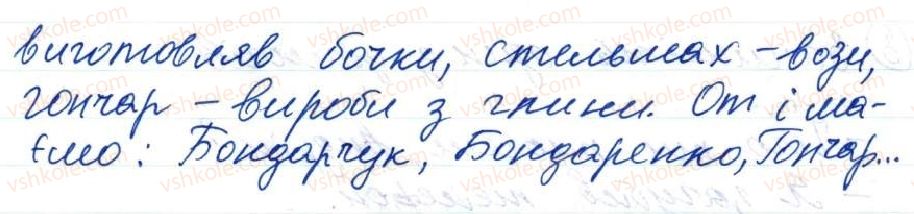 виготовляв бочки, стельмах – вози,
гончар – вироби з глини. От і ма-
ємо: Бондарчук, Бондаренко, Гончар...